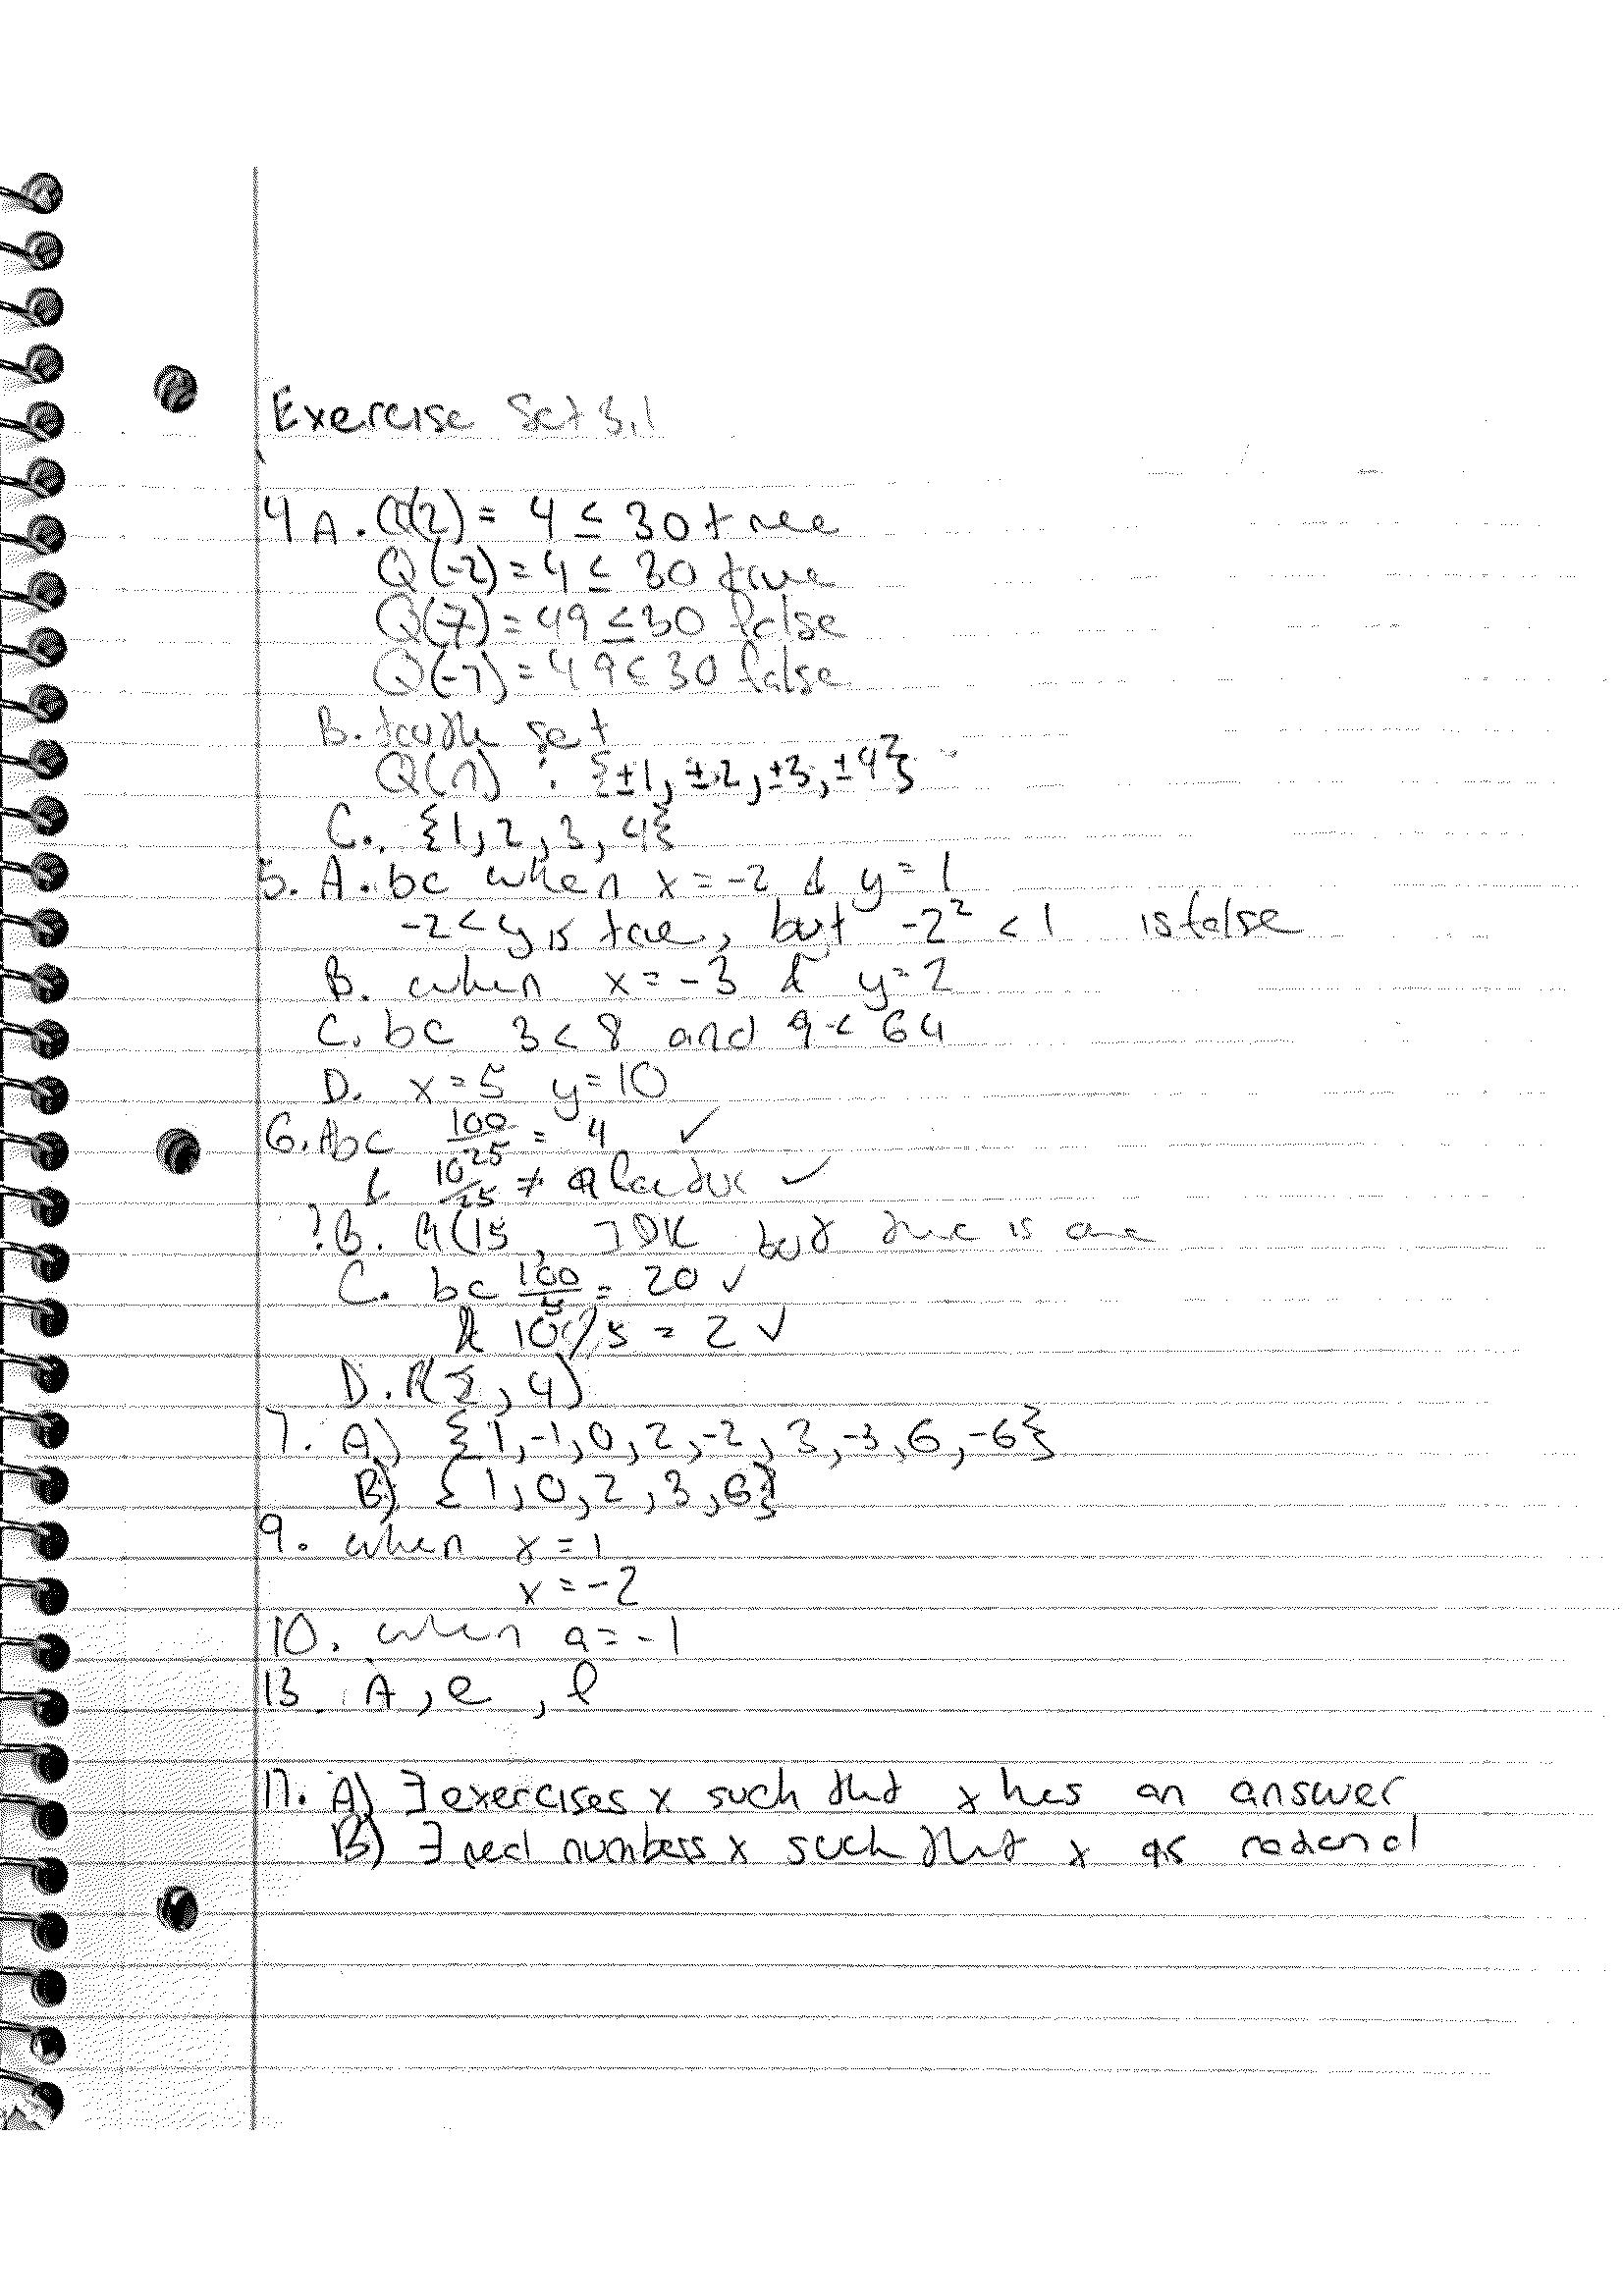 Exercise Set 3.1
4 A. Q(2) = 4 ≤ 30 true
Q(-2) = 4 ≤ 30 true
Q(7) = 49 ≤ 30 false
Q(-7) = 49 ≤ 30 false
B. truth set
Q(n) : {±1, ±2, ±3, ±4}
C. {1, 2, 3, 4}
5. A. bc when x = -2 & y = 1
-2 < y is true, but -2² < 1 is false
B. when x = -3 & y = 2
C. bc 3 < 8 and 9 < 64
D. x = 5 y = 10
6. A bc 100/25 = 4 ✓
& 10/25 ≠ ✓
?B. R(15, IDK but there is one
C. bc 100/5 = 20 ✓
& 10/5 = 2 ✓
D. R( , 4)
7. A) {1, -1, 0, 2, -2, 3, -3, 6, -6}
B) {1, 0, 2, 3, 6}
9. when x = 1
x = -2
10. when a = -1
13. A, e, f
17. A) ∃ exercises x such that x has an answer
B) ∃ real numbers x such that x is rational